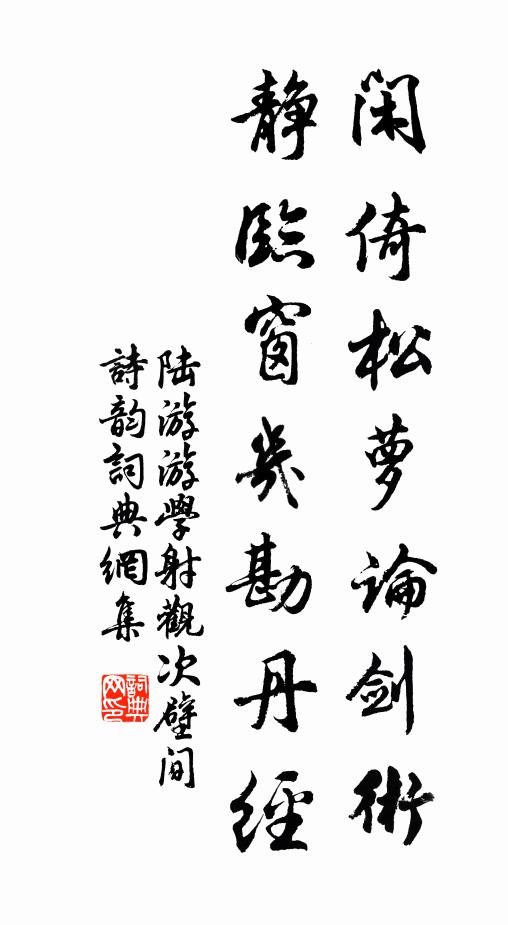 闲倚松萝論剑術
静臨窗幾勘丹經
陸游游學射觀次壁间
詩韵詞典網集
詞典网印